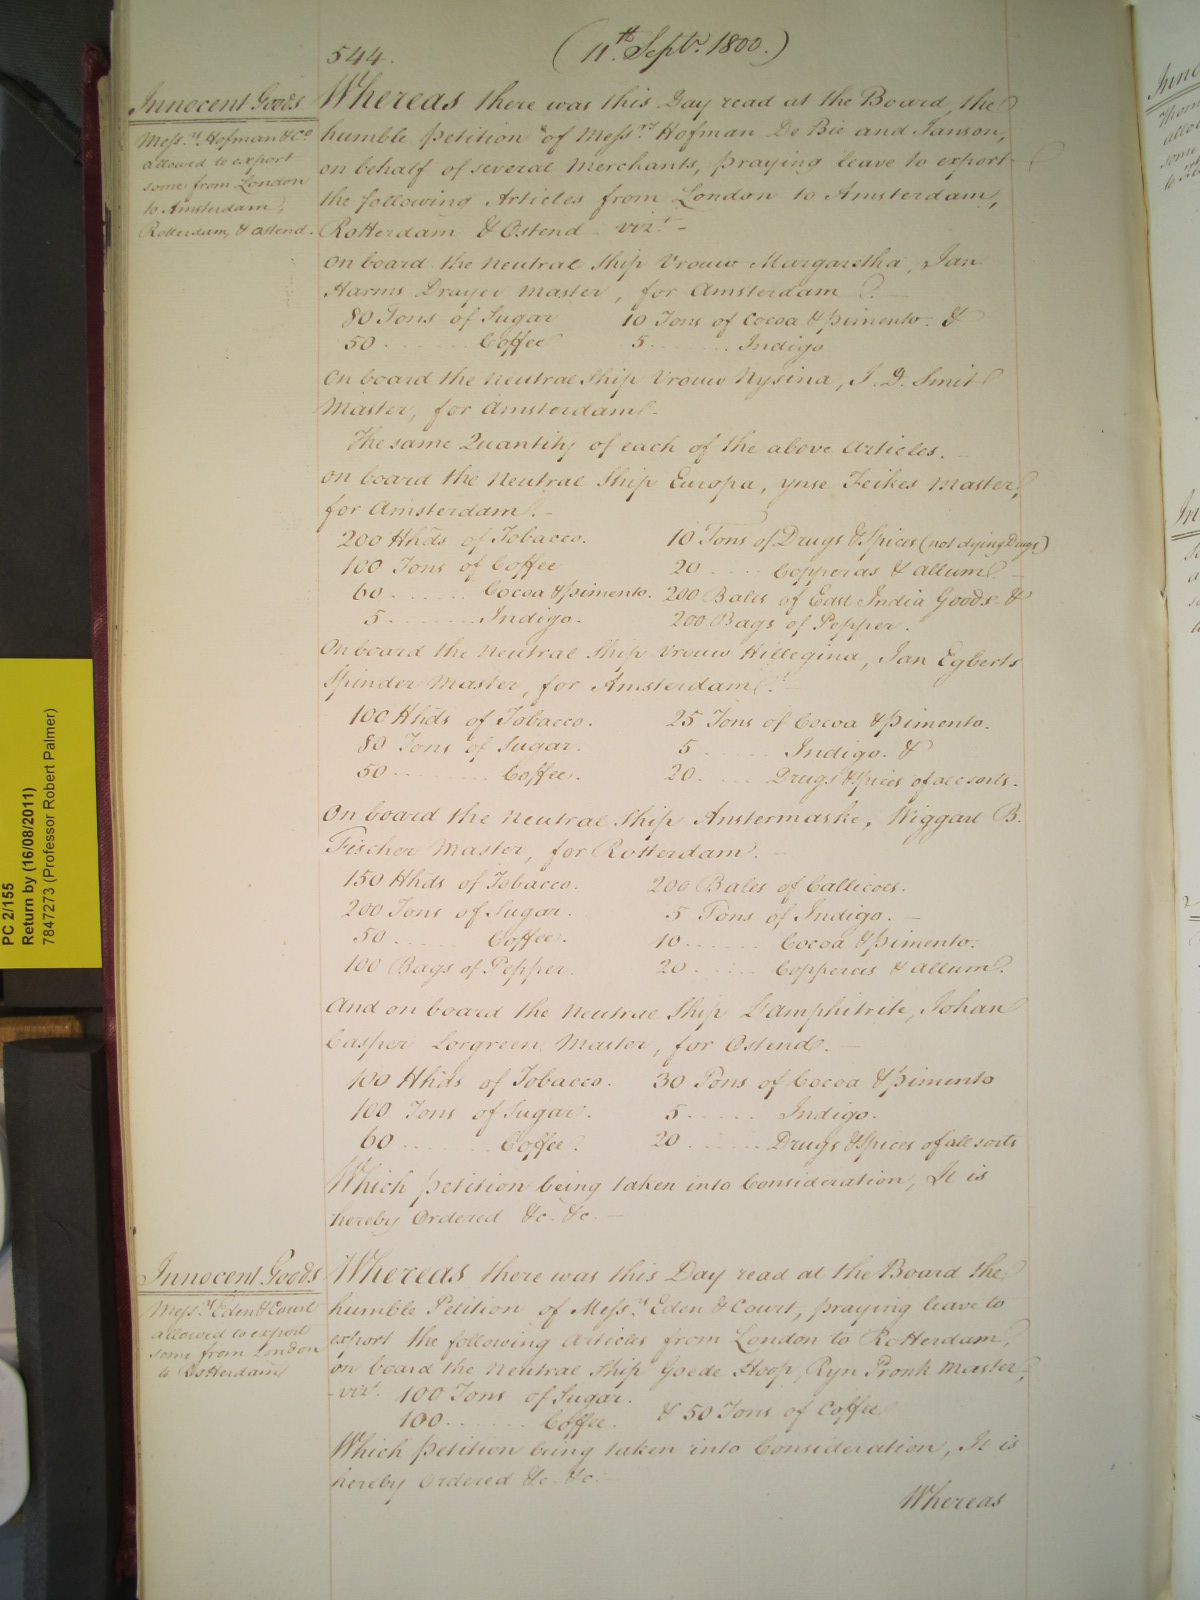 544.
(11th Septr. 1800.)
Innocent Goods
Messrs. Hofman & Co
allowed to export
some from London
to Amsterdam,
Rotterdam, & Ostend.
Whereas there was this Day read at the Board, the
humble Petition of Messrs. Hofman De Bie and Janson,
on behalf of several Merchants, praying leave to export
the following Articles from London to Amsterdam,
Rotterdam & Ostend - vizt. -
On board the Neutral Ship Vrouw Margaretha, Jan
Harms Drayer Master, for Amsterdam. -
80 Tons of Sugar 10 Tons of Cocoa & Pimento. &
50 ........ Coffee 5 ........ Indigo
On board the Neutral Ship Vrouw Nysina, J. D. Smit
Master, for Amsterdam. -
The same Quantity of each of the above Articles. -
On board the Neutral Ship Europa, Ynse Feikes Master,
for Amsterdam. -
200 Hhds of Tobacco. 10 Tons of Drugs & Spices (not dying Drugs)
100 Tons of Coffee 20 .... Copperas & Allum. -
60 ...... Cocoa & Pimento. 200 Bales of East India Goods - &
5 ........ Indigo. 200 Bags of Pepper.
On board the Neutral Ship Vrouw Hillegina, Jan Egberts
Spinder Master, for Amsterdam. -
100 Hhds of Tobacco. 25 Tons of Cocoa & Pimento.
80 Tons of Sugar. 5 ...... Indigo. &
50 ........ Coffee. 20 ...... Drugs & Spices of all sorts.
On board the Neutral Ship Anstermaske, Wiggard B.
Fischer Master, for Rotterdam. -
150 Hhds of Tobacco. 200 Bales of Callicoes.
200 Tons of Sugar. 5 Tons of Indigo. -
50 ...... Coffee. 10 ...... Cocoa & Pimento.
100 Bags of Pepper. 20 ...... Copperas & Allum.
And on board the Neutral Ship L'amphitrite, Johan
Casper Lorgreen Master, for Ostend. -
100 Hhds of Tobacco. 30 Tons of Cocoa & Pimento
100 Tons of Sugar. 5 ...... Indigo.
60 ...... Coffee. 20 ...... Drugs & Spices of all sorts
Which Petition being taken into Consideration, It is
hereby Ordered &c. &c. -
Innocent Goods
Messrs. Eden & Court
allowed to export
some from London
to Rotterdam
Whereas there was this Day read at the Board the
humble Petition of Messrs. Eden & Court, praying leave to
export the following Articles from London to Rotterdam,
on board the Neutral Ship Goede Hoop, Ryn Pronk Master,
- vizt. 100 Tons of Sugar.
100 ........ Coffee. & 50 Tons of Coffee
Which Petition being taken into Consideration, It is
hereby Ordered &c. &c. -
Whereas
PC 2/155
Return by (16/08/2011)
7847273 (Professor Robert Palmer)